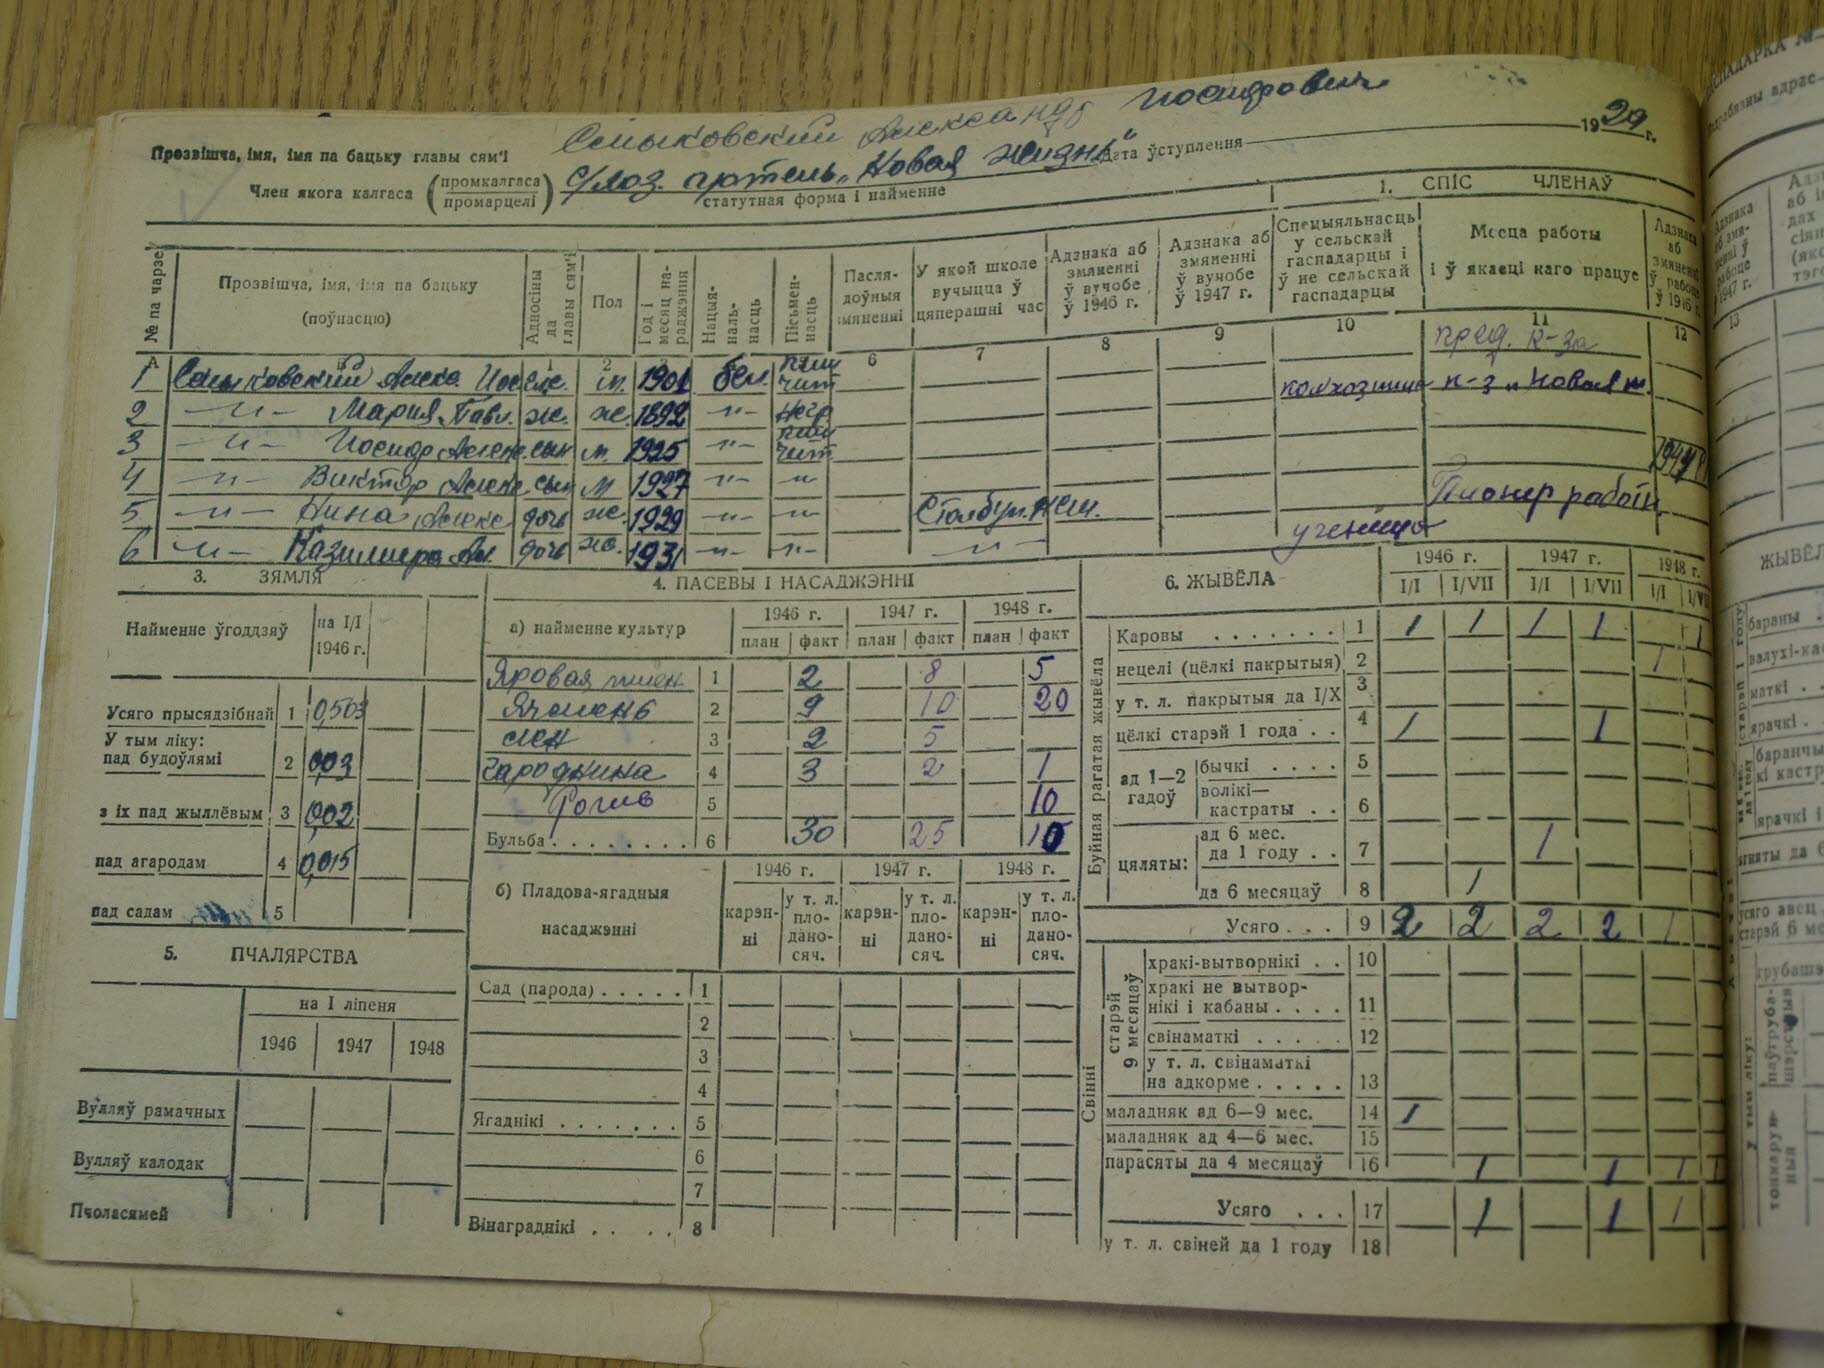 Прозвішча, імя, імя па бацьку главы сям'і Смыковский Александр Иосифович
Член якога калгаса (промкалгаса промарцелі) с/хоз. артель „Новая жизнь" Дата ўступлення 1929 г.
статутная форма і найменне
1. СПІС ЧЛЕНАЎ
№ па чарзе
Прозвішча, імя, імя па бацьку (поўнасцю)
Адносіны да главы сям'і
Пол
Год і месяц нараджэння
Нацыянальнасць
Пісьменнасць
Паслядоўныя змяненні
У якой школе вучыцца ў цяперашні час
Адзнака аб змяненні ў вучобе ў 1946 г.
Адзнака аб змяненні ў вучобе ў 1947 г.
Спецыяльнасць у сельскай гаспадарцы і ў не сельскай гаспадарцы
Месца работы і ў якасці каго працуе
Адзнака аб змяненні ў рабоце ў 1946 г.
А 1 2 6 7 8 9 10 11 12
пред. к-за
1 Смыковский Алекс. Иос м. 1901 бел. чит колхозник к-з „Новая ж.
2 -〃- Мария Павл. ж. ж. 1892 -〃- негр
3 -〃- Иосиф Алекс сын м. 1925 -〃- чит
4 -〃- Виктор Алекс сын м 1927 -〃- -〃-
5 -〃- Нина Алекс дочь ж. 1929 -〃- -〃- Столбун. Пионер работн
6 -〃- Казимира Ал. дочь ж. 1931 -〃- -〃- -〃- ученица
3. ЗЯМЛЯ
Найменне ўгоддзяў на I/I 1946 г.
Усяго прысядзібнай 1 0,503
У тым ліку:
пад будоўлямі 2 0,03
з іх пад жыллёвым 3 0,02
пад агародам 4 0,015
пад садам 5
5. ПЧАЛЯРСТВА
на I ліпеня
1946 1947 1948
Вулляў рамачных
Вулляў калодак
Пчоласямей
4. ПАСЕВЫ І НАСАДЖЭННІ
а) найменне культур 1946 г. 1947 г. 1948 г.
план факт план факт план факт
Яровая пшен. 1 2 8 5
Ячмень 2 9 10 20
лен 3 2 5
Гароднина 4 3 2 1
5 10
Бульба 6 30 25 10
б) Пладова-ягадныя насаджэнні 1946 г. 1947 г. 1948 г.
карэнні у т. л. пладаносяч. карэнні у т. л. пладаносяч. карэнні у т. л. пладаносяч.
Сад (парода) 1
2
3
4
Ягаднікі 5
6
7
Вінаграднікі 8
6. ЖЫВЁЛА 1946 г. 1947 г. 1948 г.
I/I I/VII I/I I/VII I/I I/VII
Буйная рагатая жывёла
Каровы 1 1 1 1 1 1
нецелі (цёлкі пакрытыя) 2 1
у т. л. пакрытыя да I/X 3
цёлкі старэй 1 года 4 1 1
ад 1—2 гадоў
бычкі 5
волікі—кастраты 6
цяляты:
ад 6 мес. да 1 году 7 1
да 6 месяцаў 8 1
Усяго 9 2 2 2 2 1
Свінні
старэй 9 месяцаў
хракі-вытворнікі 10
хракі не вытворнікі і кабаны 11
свінаматкі 12
у т. л. свінаматкі на адкорме 13
маладняк ад 6—9 мес. 14 1
маладняк ад 4—6 мес. 15
парасяты да 4 месяцаў 16 1 1 1 1
Усяго 17 1 1 1
у т. л. свіней да 1 году 18
Адзнака аб змяненні ў рабоце ў 1947 г.
13
бараны
маткі
ярачкі